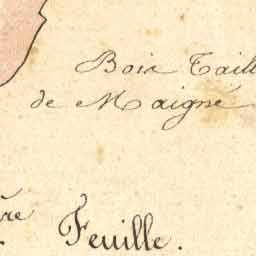 Bois Taill
de Maigné
ère Feuille.